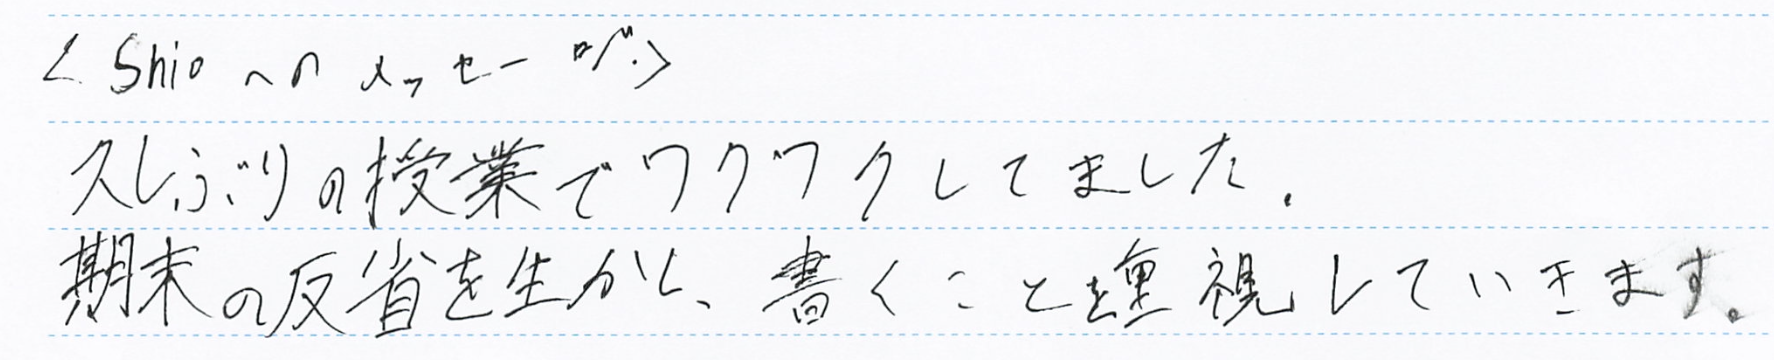 < Shioへのメッセージ >
久しぶりの授業でワクワクしてました.
期末の反省を生かし、書くことを重視していきます。